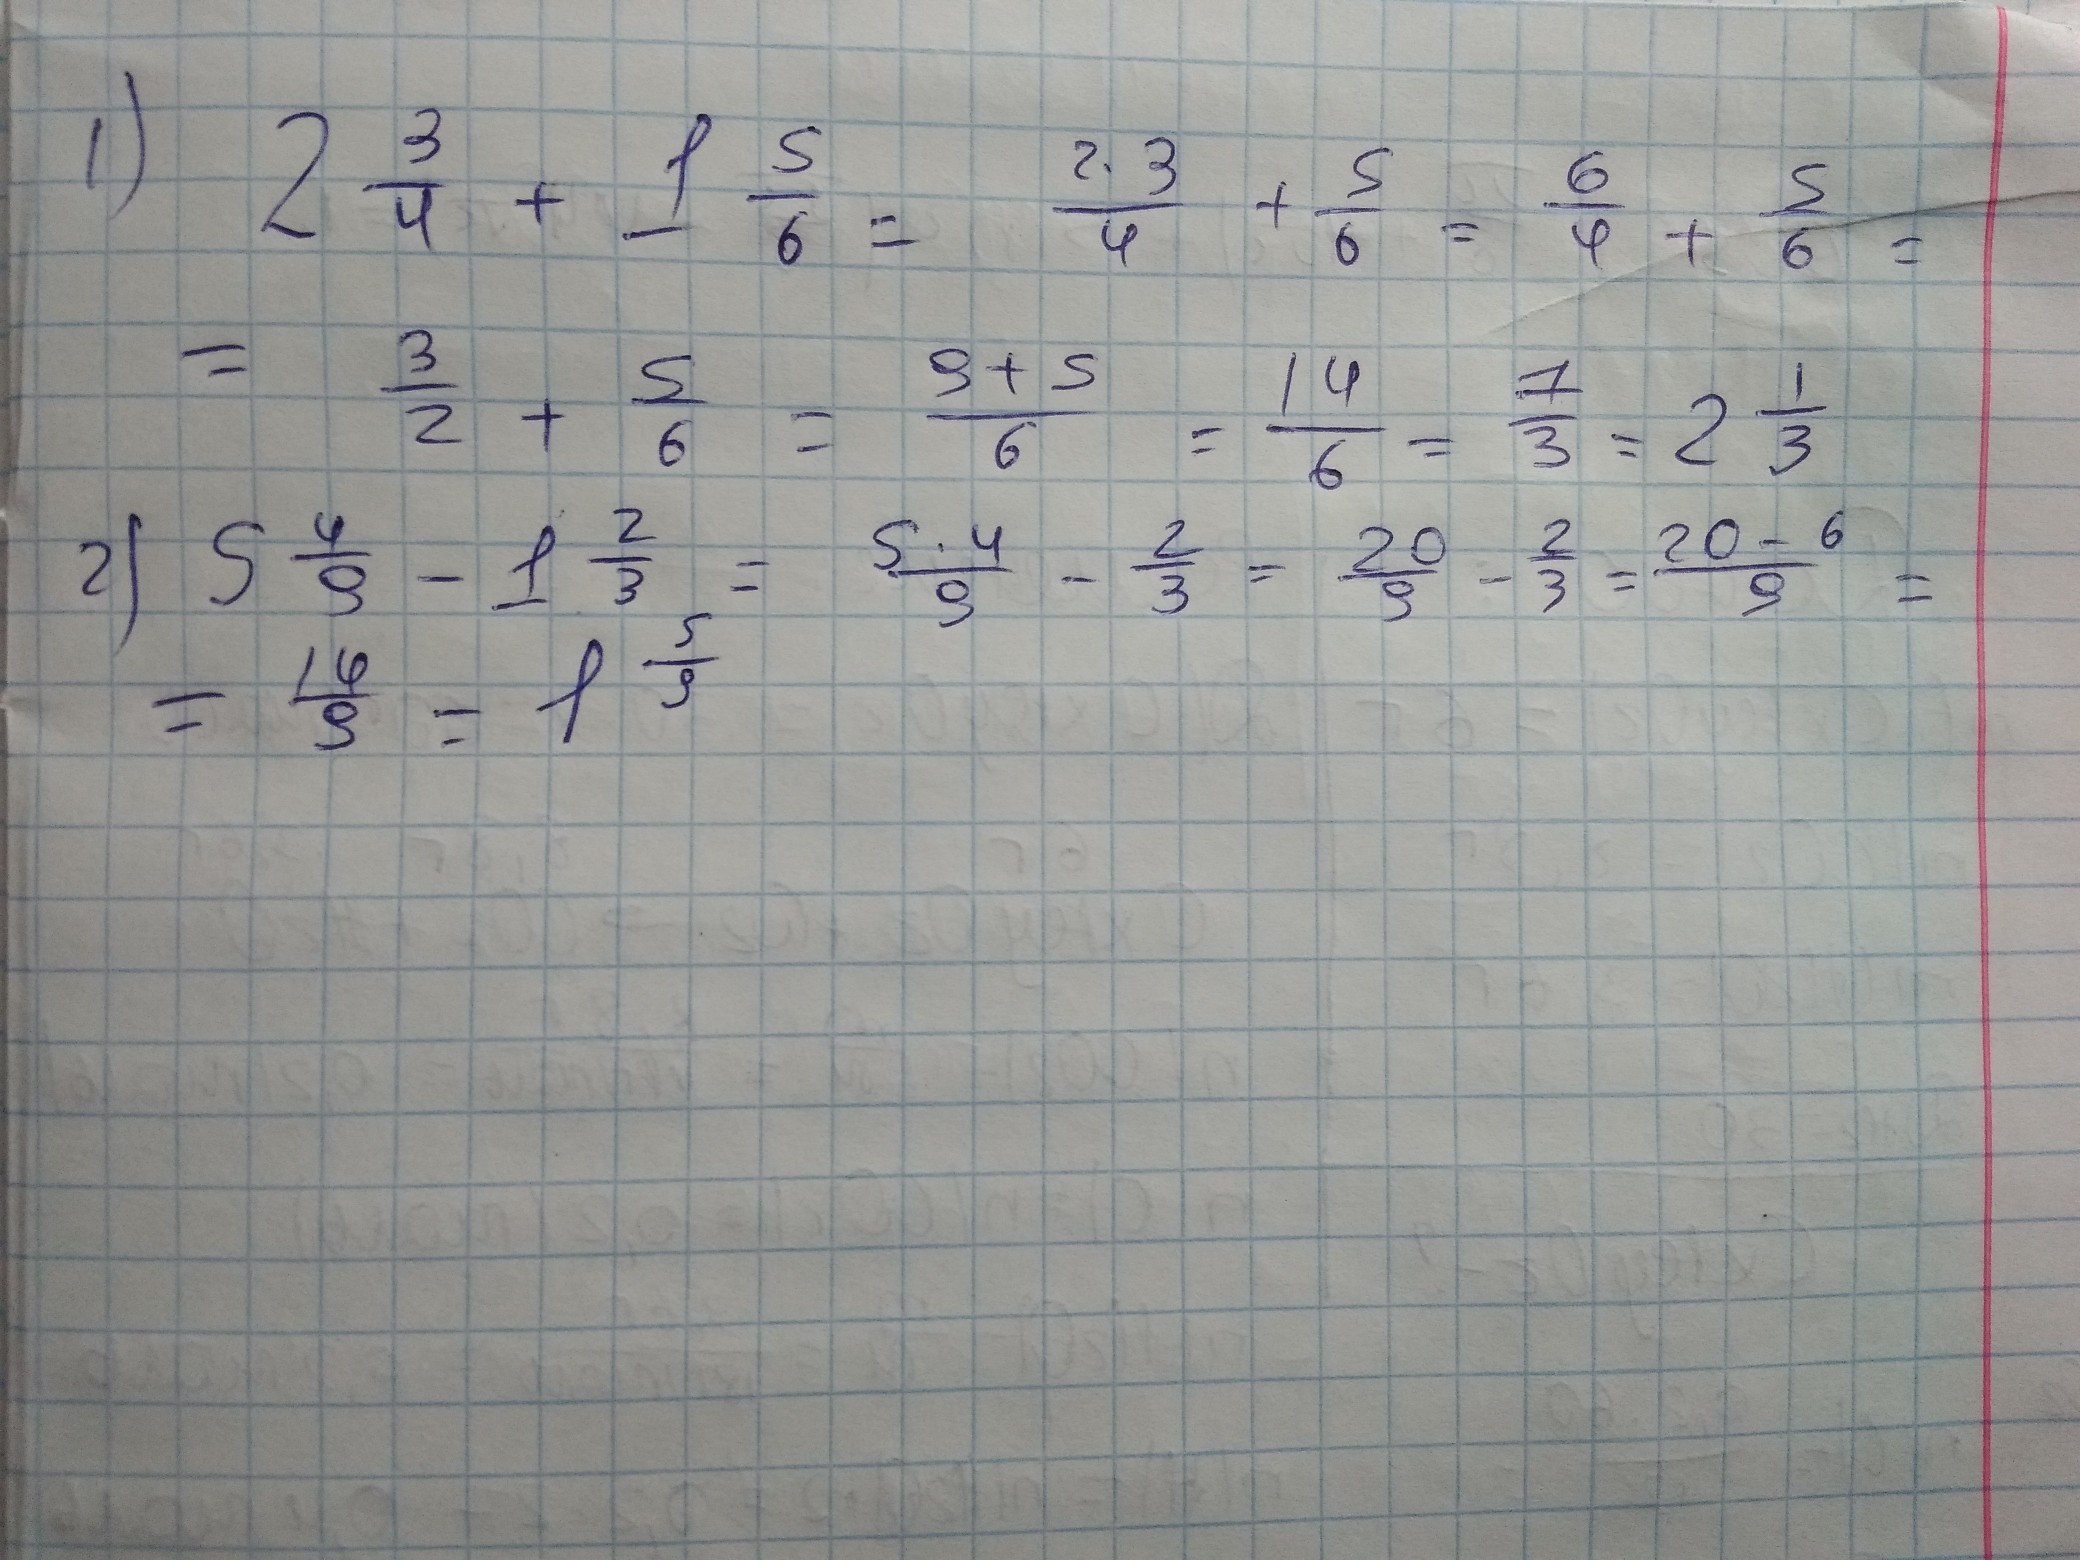 1) 2 3/4 + 1 5/6 = 2·3/4 + 5/6 = 6/4 + 5/6 =
= 3/2 + 5/6 = 9+5/6 = 14/6 = 7/3 = 2 1/3
2) 5 4/9 - 1 2/3 = 5·4/9 - 2/3 = 20/9 - 2/3 = 20-6/9 =
= 14/9 = 1 5/9